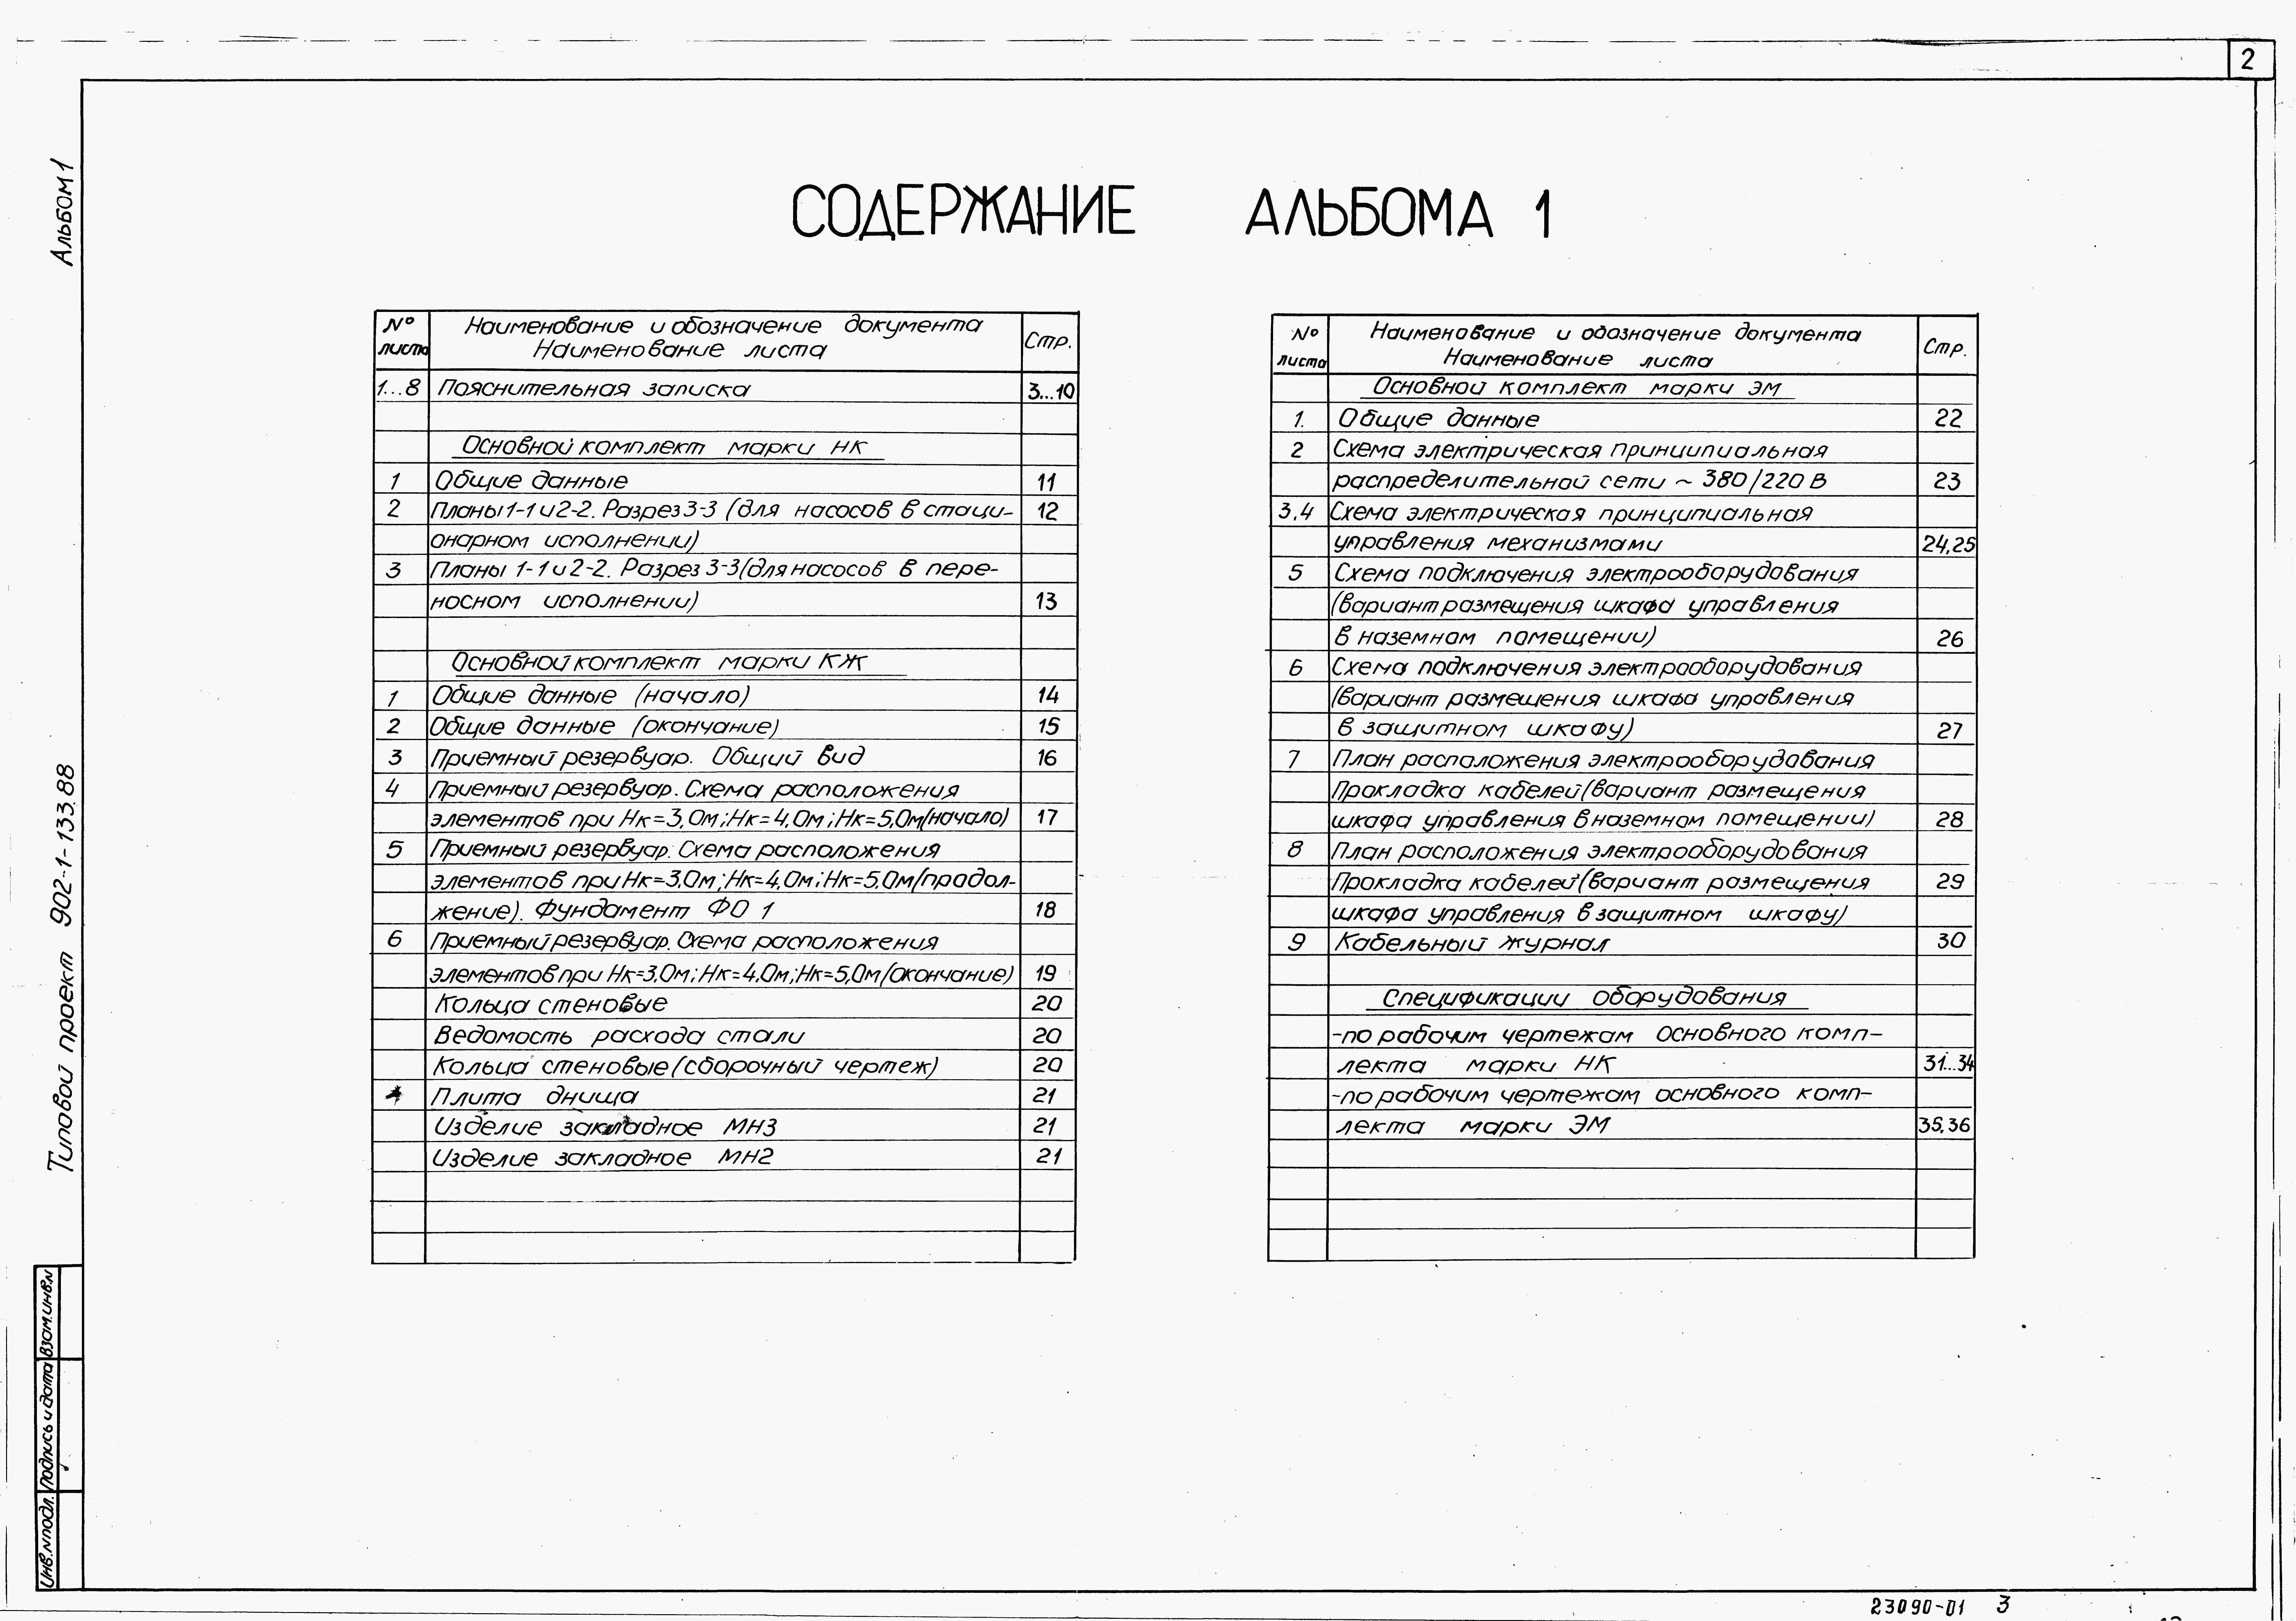 2
Альбом 1
СОДЕРЖАНИЕ АЛЬБОМА 1
№ листа Наименование и обозначение документа Наименование листа Стр.
1...8 Пояснительная записка 3...10
Основной комплект марки НК
1 Общие данные 11
2 Планы 1-1 и 2-2. Разрез 3-3 (для насосов в стаци- 12
онарном исполнении)
3 Планы 1-1 и 2-2. Разрез 3-3 (для насосов в пере-
носном исполнении) 13
Основной комплект марки КЖ
1 Общие данные (начало) 14
2 Общие данные (окончание) 15
3 Приемный резервуар. Общий вид 16
4 Приемный резервуар. Схема расположения
элементов при Нк=3,0м; Нк=4,0м; Нк=5,0м (начало) 17
5 Приемный резервуар. Схема расположения
элементов при Нк=3,0м; Нк=4,0м; Нк=5,0м (продол-
жение). Фундамент ФО 1 18
6 Приемный резервуар. Схема расположения
элементов при Нк=3,0м; Нк=4,0м; Нк=5,0м (окончание) 19
Кольца стеновые 20
Ведомость расхода стали 20
Кольца стеновые (сборочный чертеж) 20
Плита днища 21
Изделие закладное МН3 21
Изделие закладное МН2 21
№ листа Наименование и обозначение документа Наименование листа Стр.
Основной комплект марки ЭМ
1. Общие данные 22
2 Схема электрическая принципиальная
распределительной сети ~ 380/220 В 23
3,4 Схема электрическая принципиальная
управления механизмами 24,25
5 Схема подключения электрооборудования
(вариант размещения шкафа управления
в наземном помещении) 26
6 Схема подключения электрооборудования
(вариант размещения шкафа управления
в защитном шкафу) 27
7 План расположения электрооборудования
Прокладка кабелей (вариант размещения
шкафа управления в наземном помещении) 28
8 План расположения электрооборудования
Прокладка кабелей (вариант размещения 29
шкафа управления в защитном шкафу)
9 Кабельный журнал 30
Спецификации оборудования
-по рабочим чертежам основного комп-
лекта марки НК 31...34
-по рабочим чертежам основного комп-
лекта марки ЭМ 35,36
Типовой проект 902-1-133.88
Инв.№подл. Подпись и дата Взам.инв.№
23090-01 3